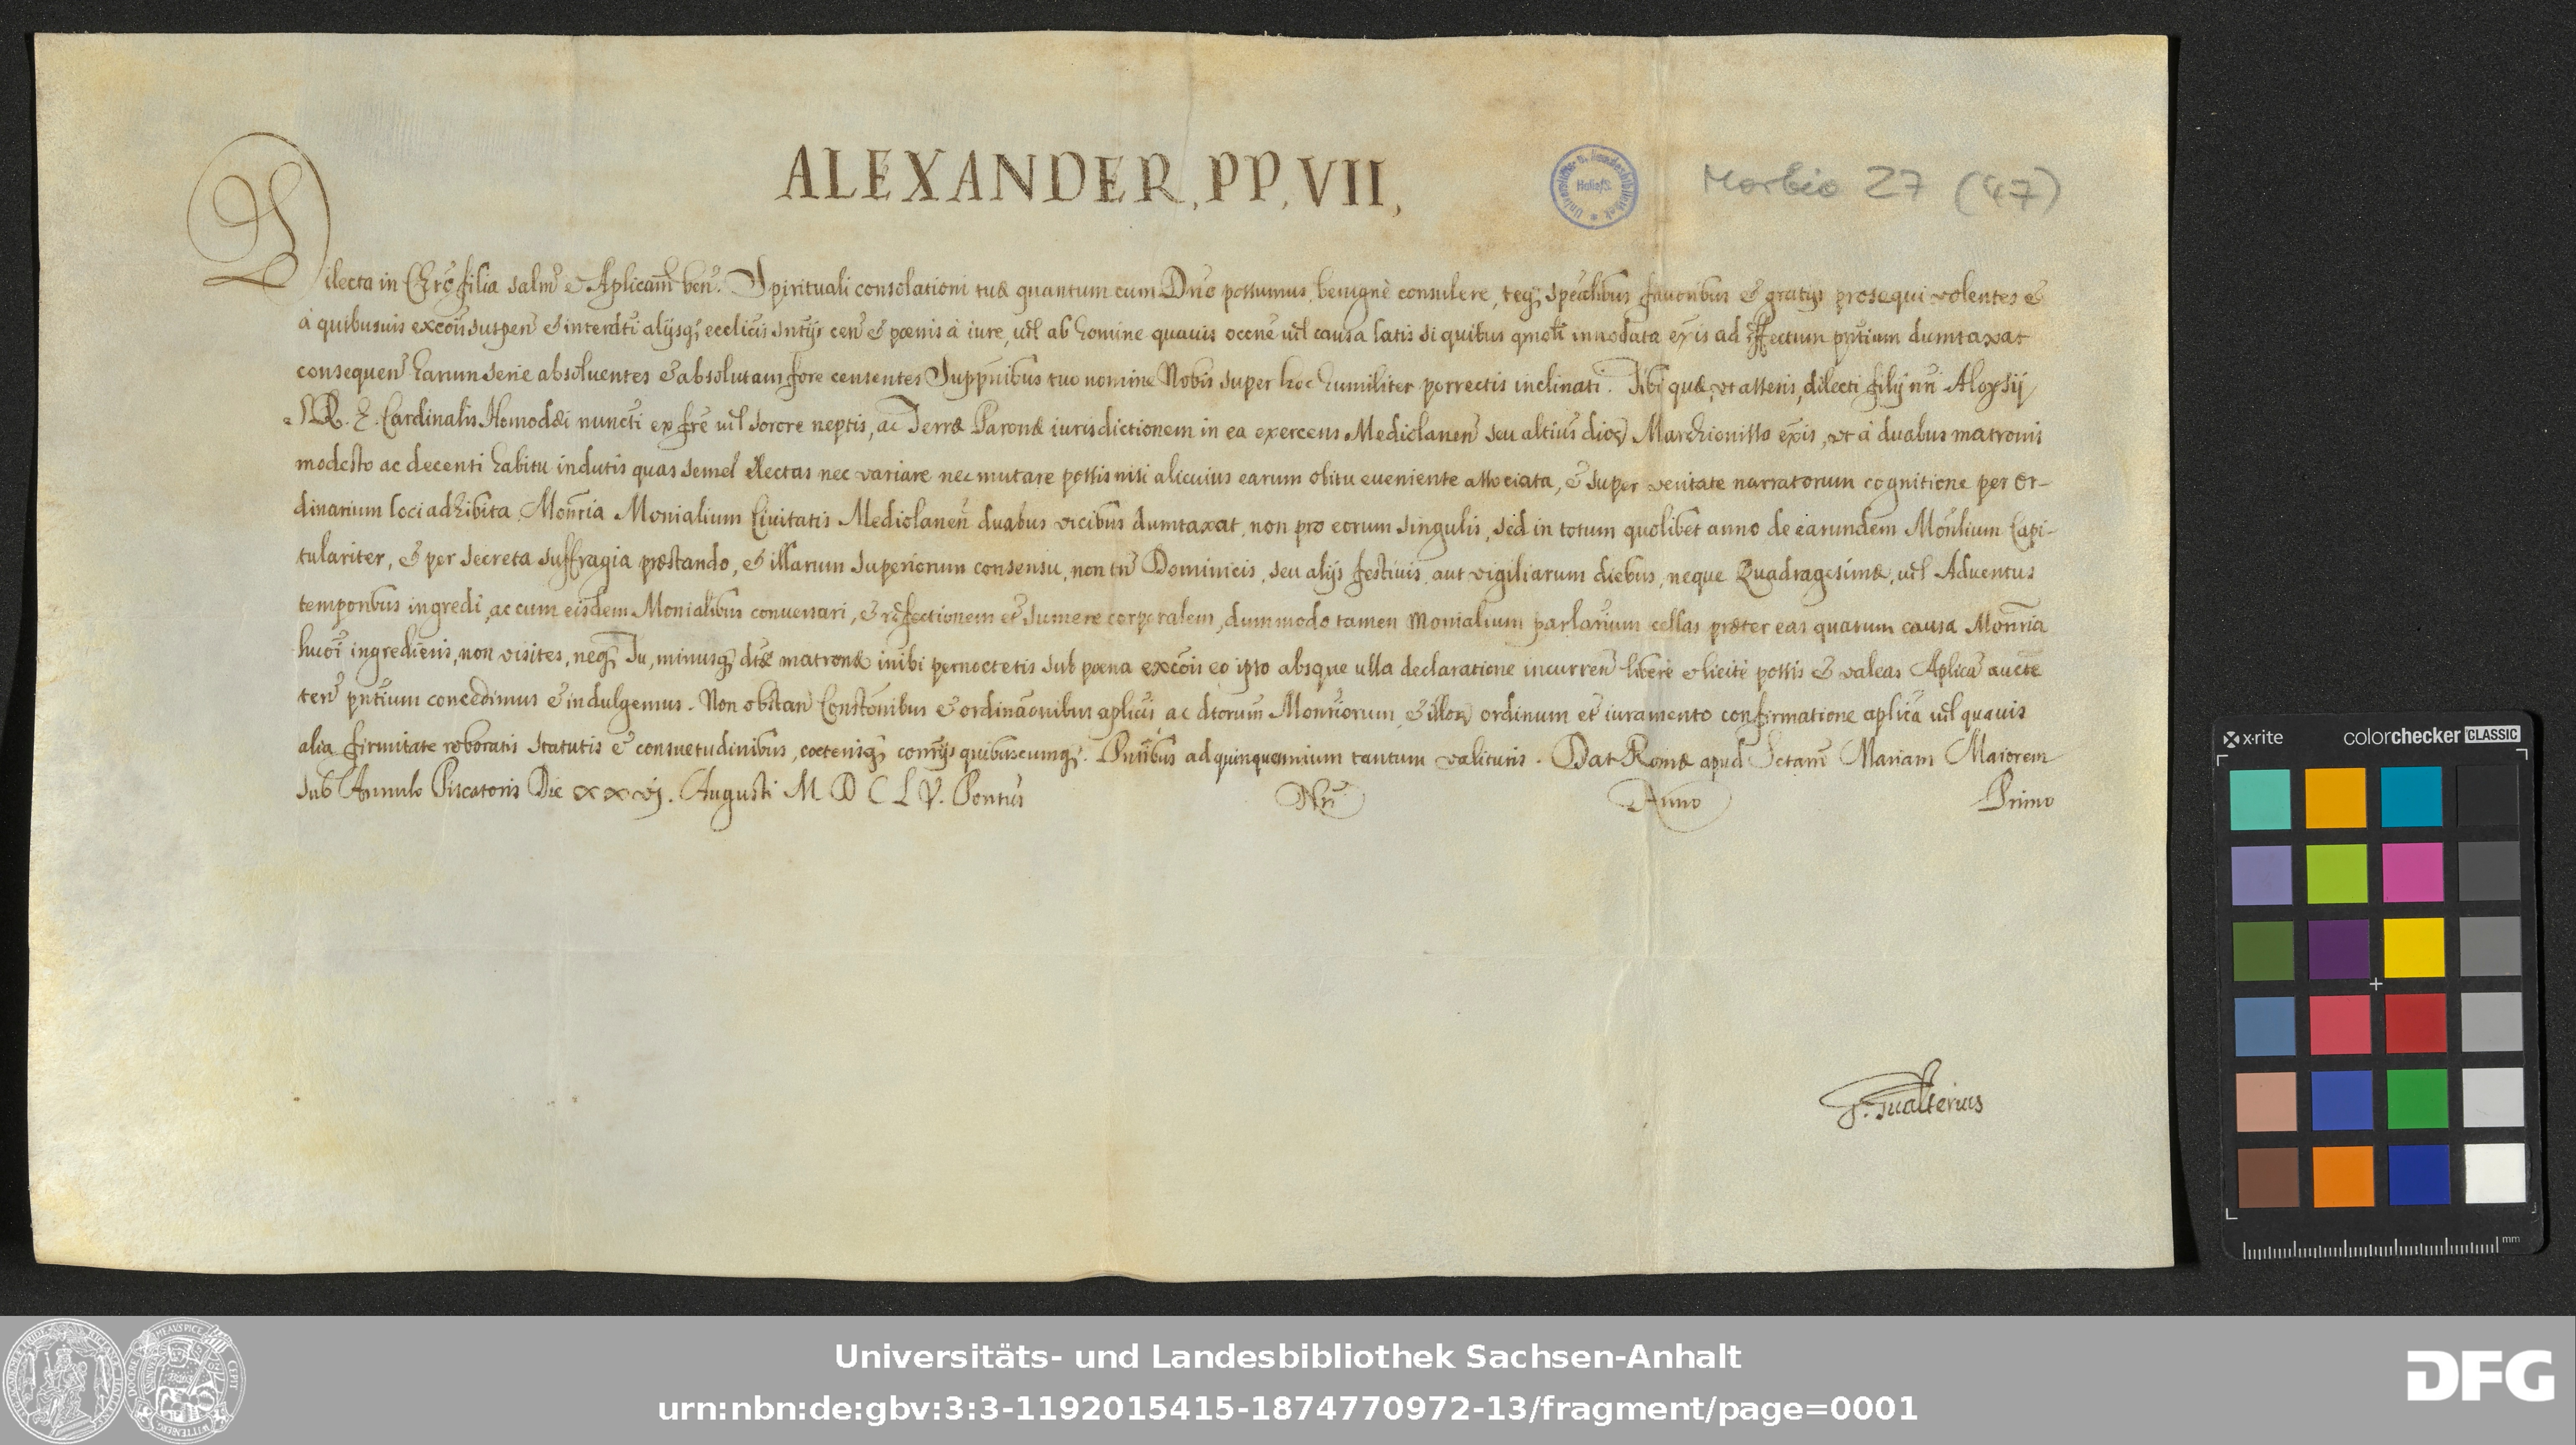 ALEXANDER, PP, VII,
Universitäts- u. Landesbibliothek Halle/S.
Morbio 27 (47)
Dilecta in Chrō filia salm̄ & Aplicam̄ ben̄. Spirituali consolationi tuæ quantum cum Dnō possumus, benignè consulere, teq; spēalibus favoribus & gratijs prosequi volentes &
à quibusuis excōis suspen̄ & interdcti alijsq; ecclicis sntijs cen̄ & pœnis à iure, vel ab homine quauis occne vel causa latis si quibus qmolt innodata exis ad effectum pntium dumtaxat
consequen̄ harum serie absoluentes & absolutam fore censentes Suppnibus tuo nomine Nobis super hoc humiliter porrectis inclinati. Tibi quæ, ut asseris, dilecti filij nri Aloysij
S. R. E. Cardinalis Homodæi nuncti ex fre vel sorore neptis, ac Terræ Paronæ iurisdictionem in ea exercens Mediolanen̄ seu alterius dioc Marchionissa exis, ut à duabus matronis
modesto ac decenti habitu indutis quas semel electas nec variare nec mutare possis nisi alicuius earum obitu eueniente associata, & super veritate narratorum cognitione per or-
dinarium loci adhibita, Monria Monialium Ciuitatis Mediolanen̄ duabus vicibus dumtaxat, non pro eorum singulis, sed in totum quolibet anno de earundem Monlium Capi-
tulariter, & per secreta suffragia præstando, & illarum superiorum consensu, non tn̄ Dominicis, seu alijs festiuis, aut vigiliarum diebus, neque Quadragesimæ, vel Aduentus
temporibus ingredi, ac cum eisdem Monialibus conuersari, & refectionem et sumere corporalem, dummodo tamen Monialium parlarium cellas præter eas quarum causa Monria
huōi ingredieris, non visites, neq; Tu, minusq; dtæ matronæ inibi pernoctetis sub pœna excōis eo ipso absque ulla declaratione incurren̄ liberè & licitè possis & valeas Aplica aucte
ten̄ pntium concedimus & indulgemus. Non obstan̄ Constōnibus & ordināonibus aplicis ac dtorum Monriorum, & illor ordinum et iuramento confirmatione aplica vel quauis
alia firmitate roboratis statutis & consuetudinibus, cæterisq; conrijs quibuscunq;. Pntibus ad quinquennium tantum valituris. Dat Romæ apud Sctam Mariam Maiorem
sub Annulo Piscatoris Die xxvj. Augusti M D C L V. Pontus Nrī Anno Primo
G. Gualterius
x-rite colorchecker CLASSIC
mm
Universitäts- und Landesbibliothek Sachsen-Anhalt
urn:nbn:de:gbv:3:3-1192015415-1874770972-13/fragment/page=0001
DFG